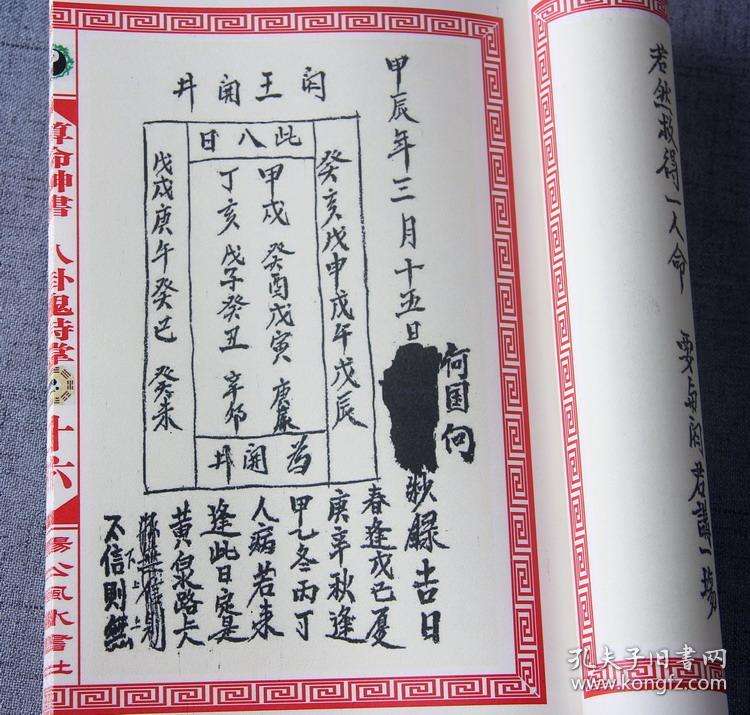 若然救得一人命 要与闫君講一場
甲辰年三月十五日
何国向
抄録吉日
闫王開井
此八日
癸亥戊申戊午戊辰
甲戌 癸酉戊寅
丁亥 戊子癸丑 辛卯
戊戌庚午癸巳 癸未
为開井
春逢戊己夏
庚辛秋逢
甲乙冬丙丁
人病若来
逢此日定是
黄泉路
不信則無
算命神書 八卦鬼時掌
十六
楊公風水書社
孔夫子旧书网
www.kongfz.com